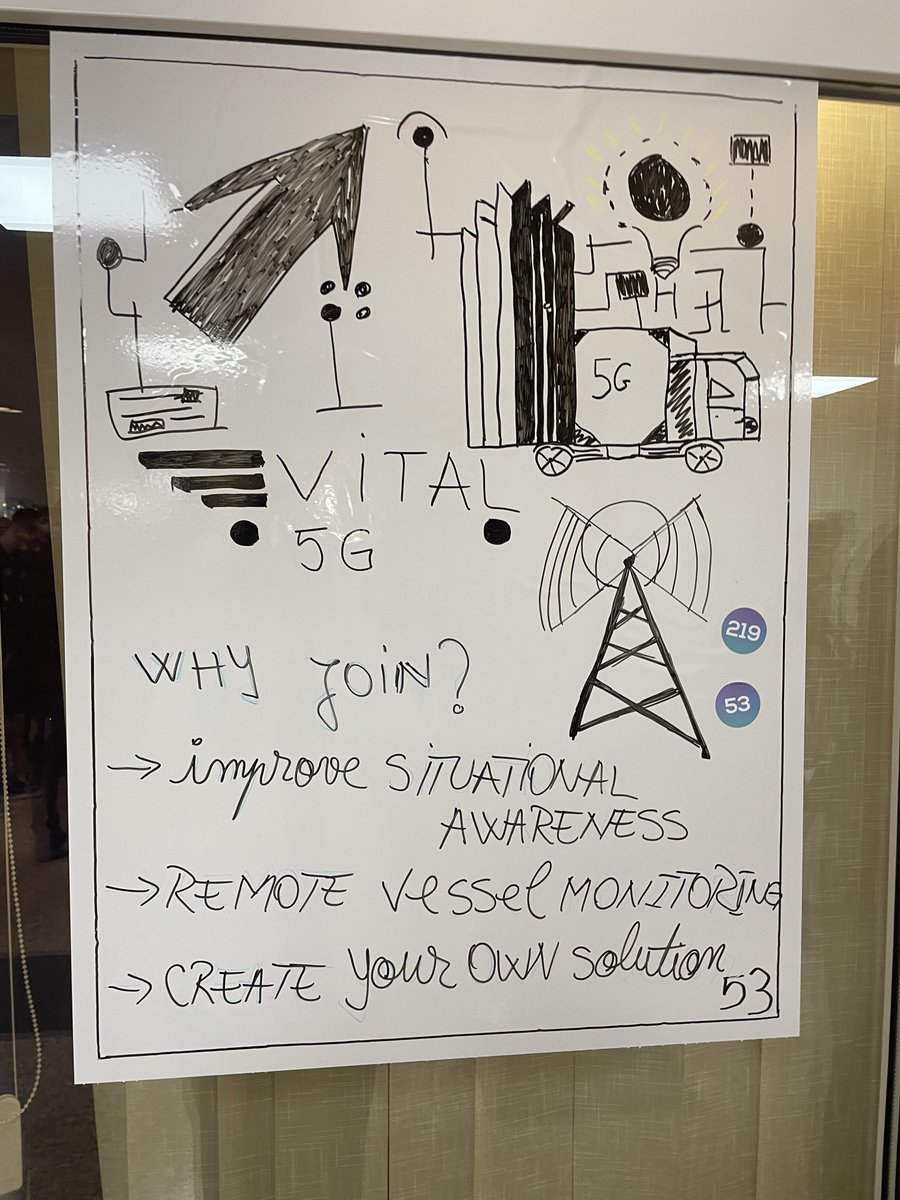 5G
ViTAL
5G
219
WHY JOiN?
53
→ improve SiTUATiONAL
AWARENESS
→ REMOTE vessel MONITORING
→ CREATE your OWN solution
53